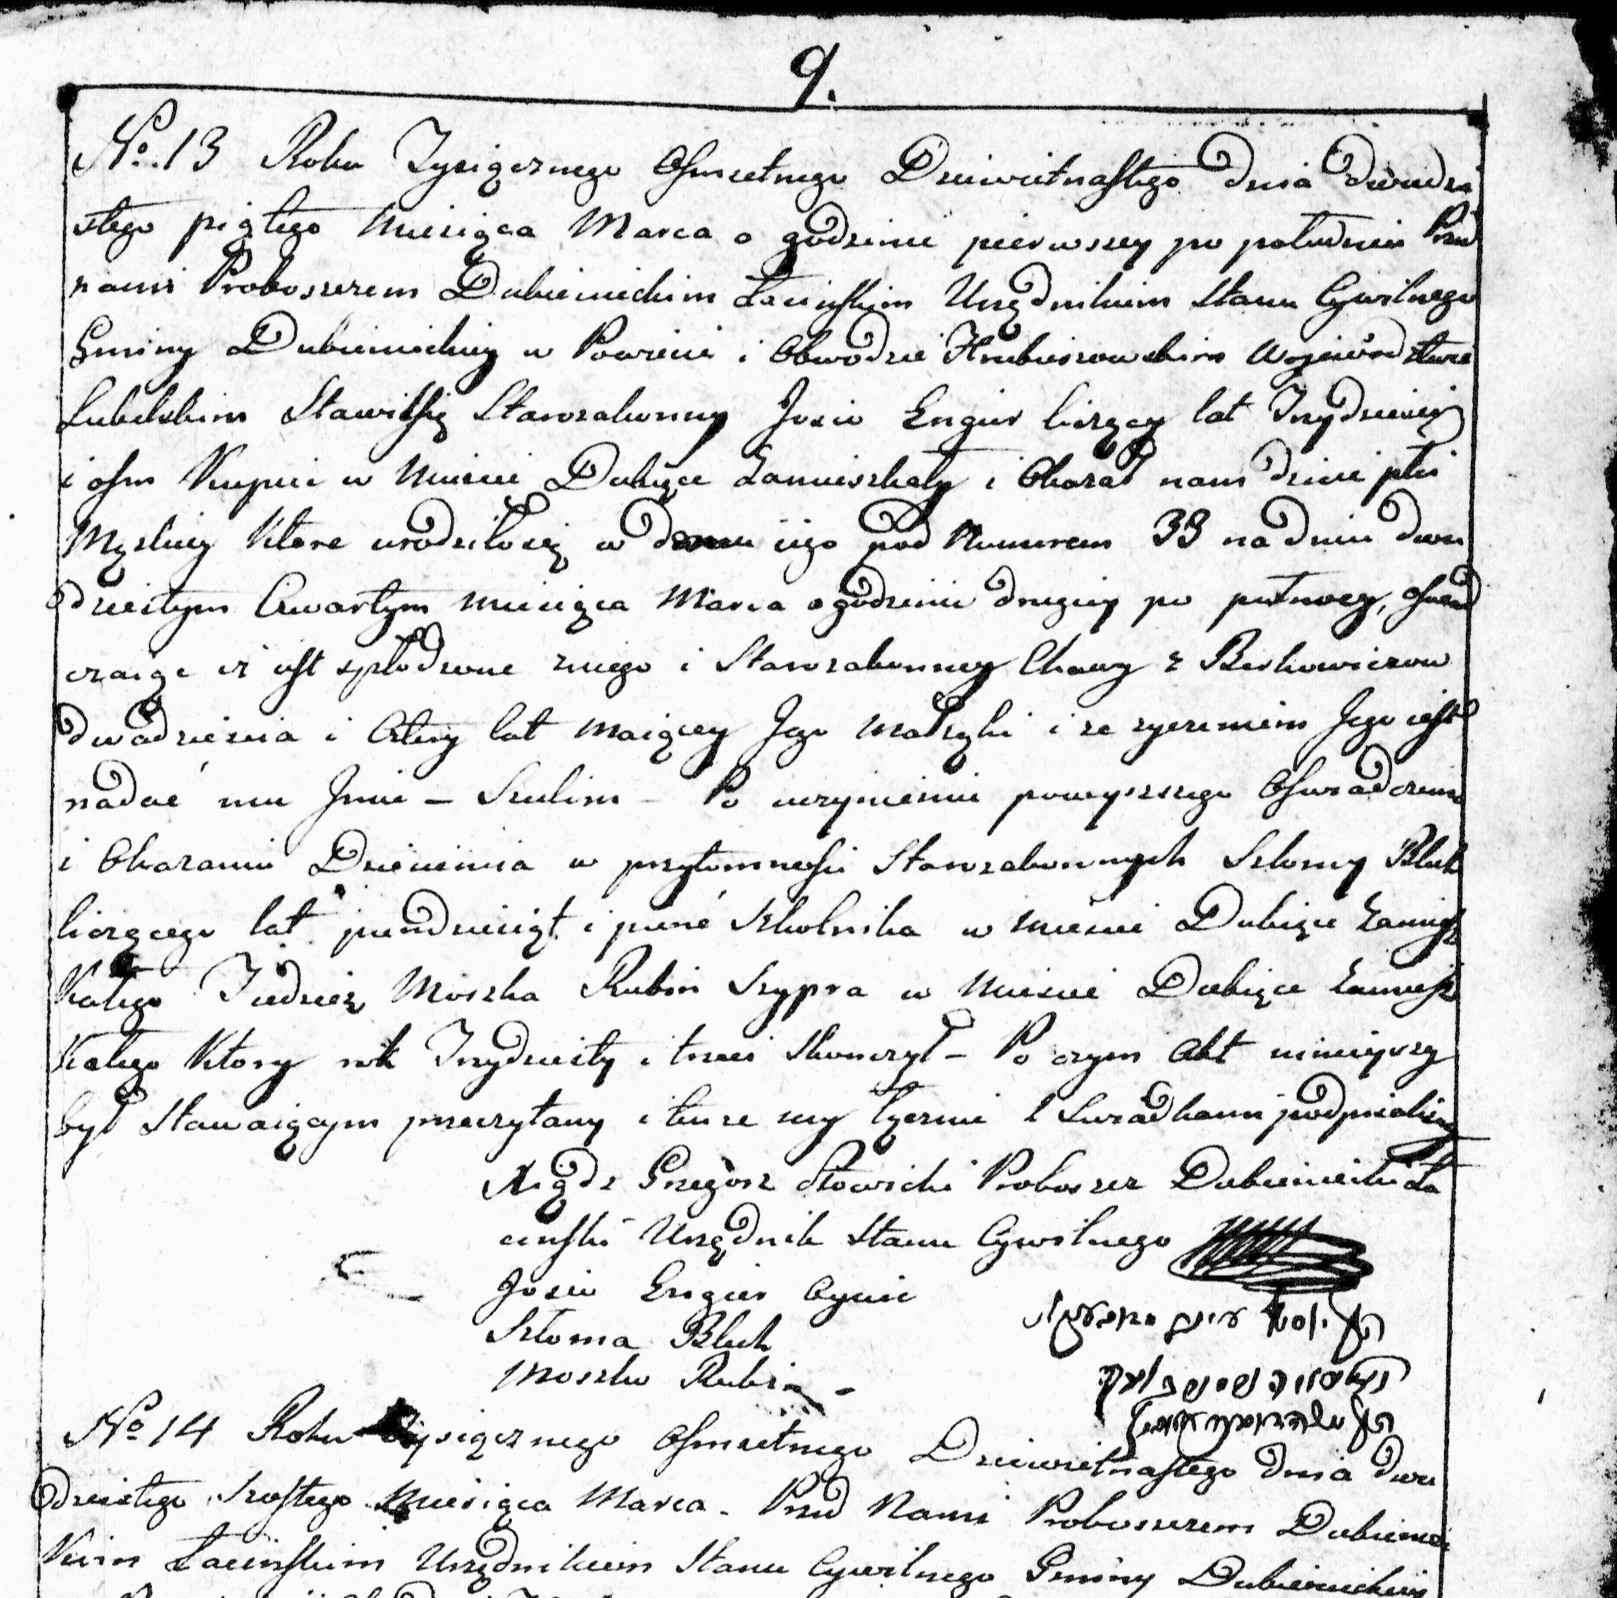 9.
No. 13 Roku Tysiącznego Osmsetnego Dziewiętnastego dnia dwudzie
stego piątego Miesiąca Marca o godzinie pierwszey po południu Przed
nami Proboszczem Dubienieckim Łacińskim Urzędnikiem Stanu Cywilnego
Gminy Dubienieckiey w Powiecie i Obwodzie Hrubieszowskim Wojewodztwie
Lubelskim Stawił się Starozakonny Josiw Engier liczący lat Trzydzieści
i osm Kupiec w Mieście Dubięce Zamieszkały i Okazał nam dziecie płci
Męzkiey Które urodziło się w domu iego pod Numerem 33 na dniu dwu
dziestym Czwartym miesiąca Marca o godzinie drugiey po pułnocy, oswiad
czaiąc iż iest spłodzone z niego i Starozakonney Chawy z Berkowiczow
dwadzieścia i Cztery lat maiącey Jego Małżąki i że zyczeniem Jego iest
nadać mu Jmie - Szulim - Po uczynieniu powyższego Oswiadczenia
i Okazaniu Dziecięcia w przytomności Starozakonnych Szlomy Bluk
liczącego lat piendziesiąt i pięć Szkolnika w mieście Dubięce Zamiesz
Kałego Tudzież Moszka Rubin Szypra w Mieście Dubięce Zamiesz
Kałego Ktory rok Trzydziesty i trzeci Skonczył - Po czym Akt ninieyszy
był Stawaiącym przeczytany i tenże my tyczmie z Swiadkami podpisaliśmy
Xiądz Grzegorz Słowicki Proboszcz Dubieniecki Ła
ciński Urzędnik Stanu Cywilnego
Josiw Engier Oyciec
Szloma Bluk
Moszko Rubin -
No. 14 Roku Tysiącznego Osmsetnego Dziewiętnastego dnia dwu
dziestego Szostego Miesiąca Marca - Przed Nami Proboszczem Dubieniec
Kim Łacińskim Urzędnikiem Stanu Cywilnego Gminy Dubienieckiey